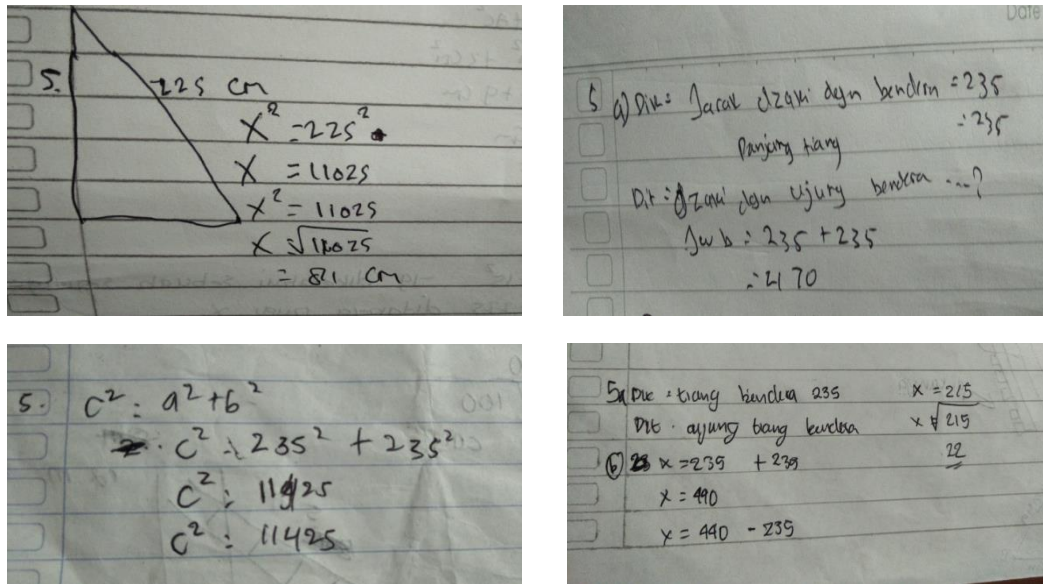 5. 225 cm
x² = 225²
x = 11025
x² = 11025
x √11025
= 81 cm
Date
5 a) Dik = Jarak dzaki dgn bendera = 235
Panjang tiang = 235
Dit = dzaki dgn ujung bendera ...?
Jwb = 235 + 235
= 470
5. c² = a² + b²
c² = 235² + 235²
c² = 11425
c² = 11425
5a Dik = tiang bendera 235
Dit = ujung tiang bendera
b x = 235 + 235
x = 490
x = 440 - 235
x = 215
x √215
22